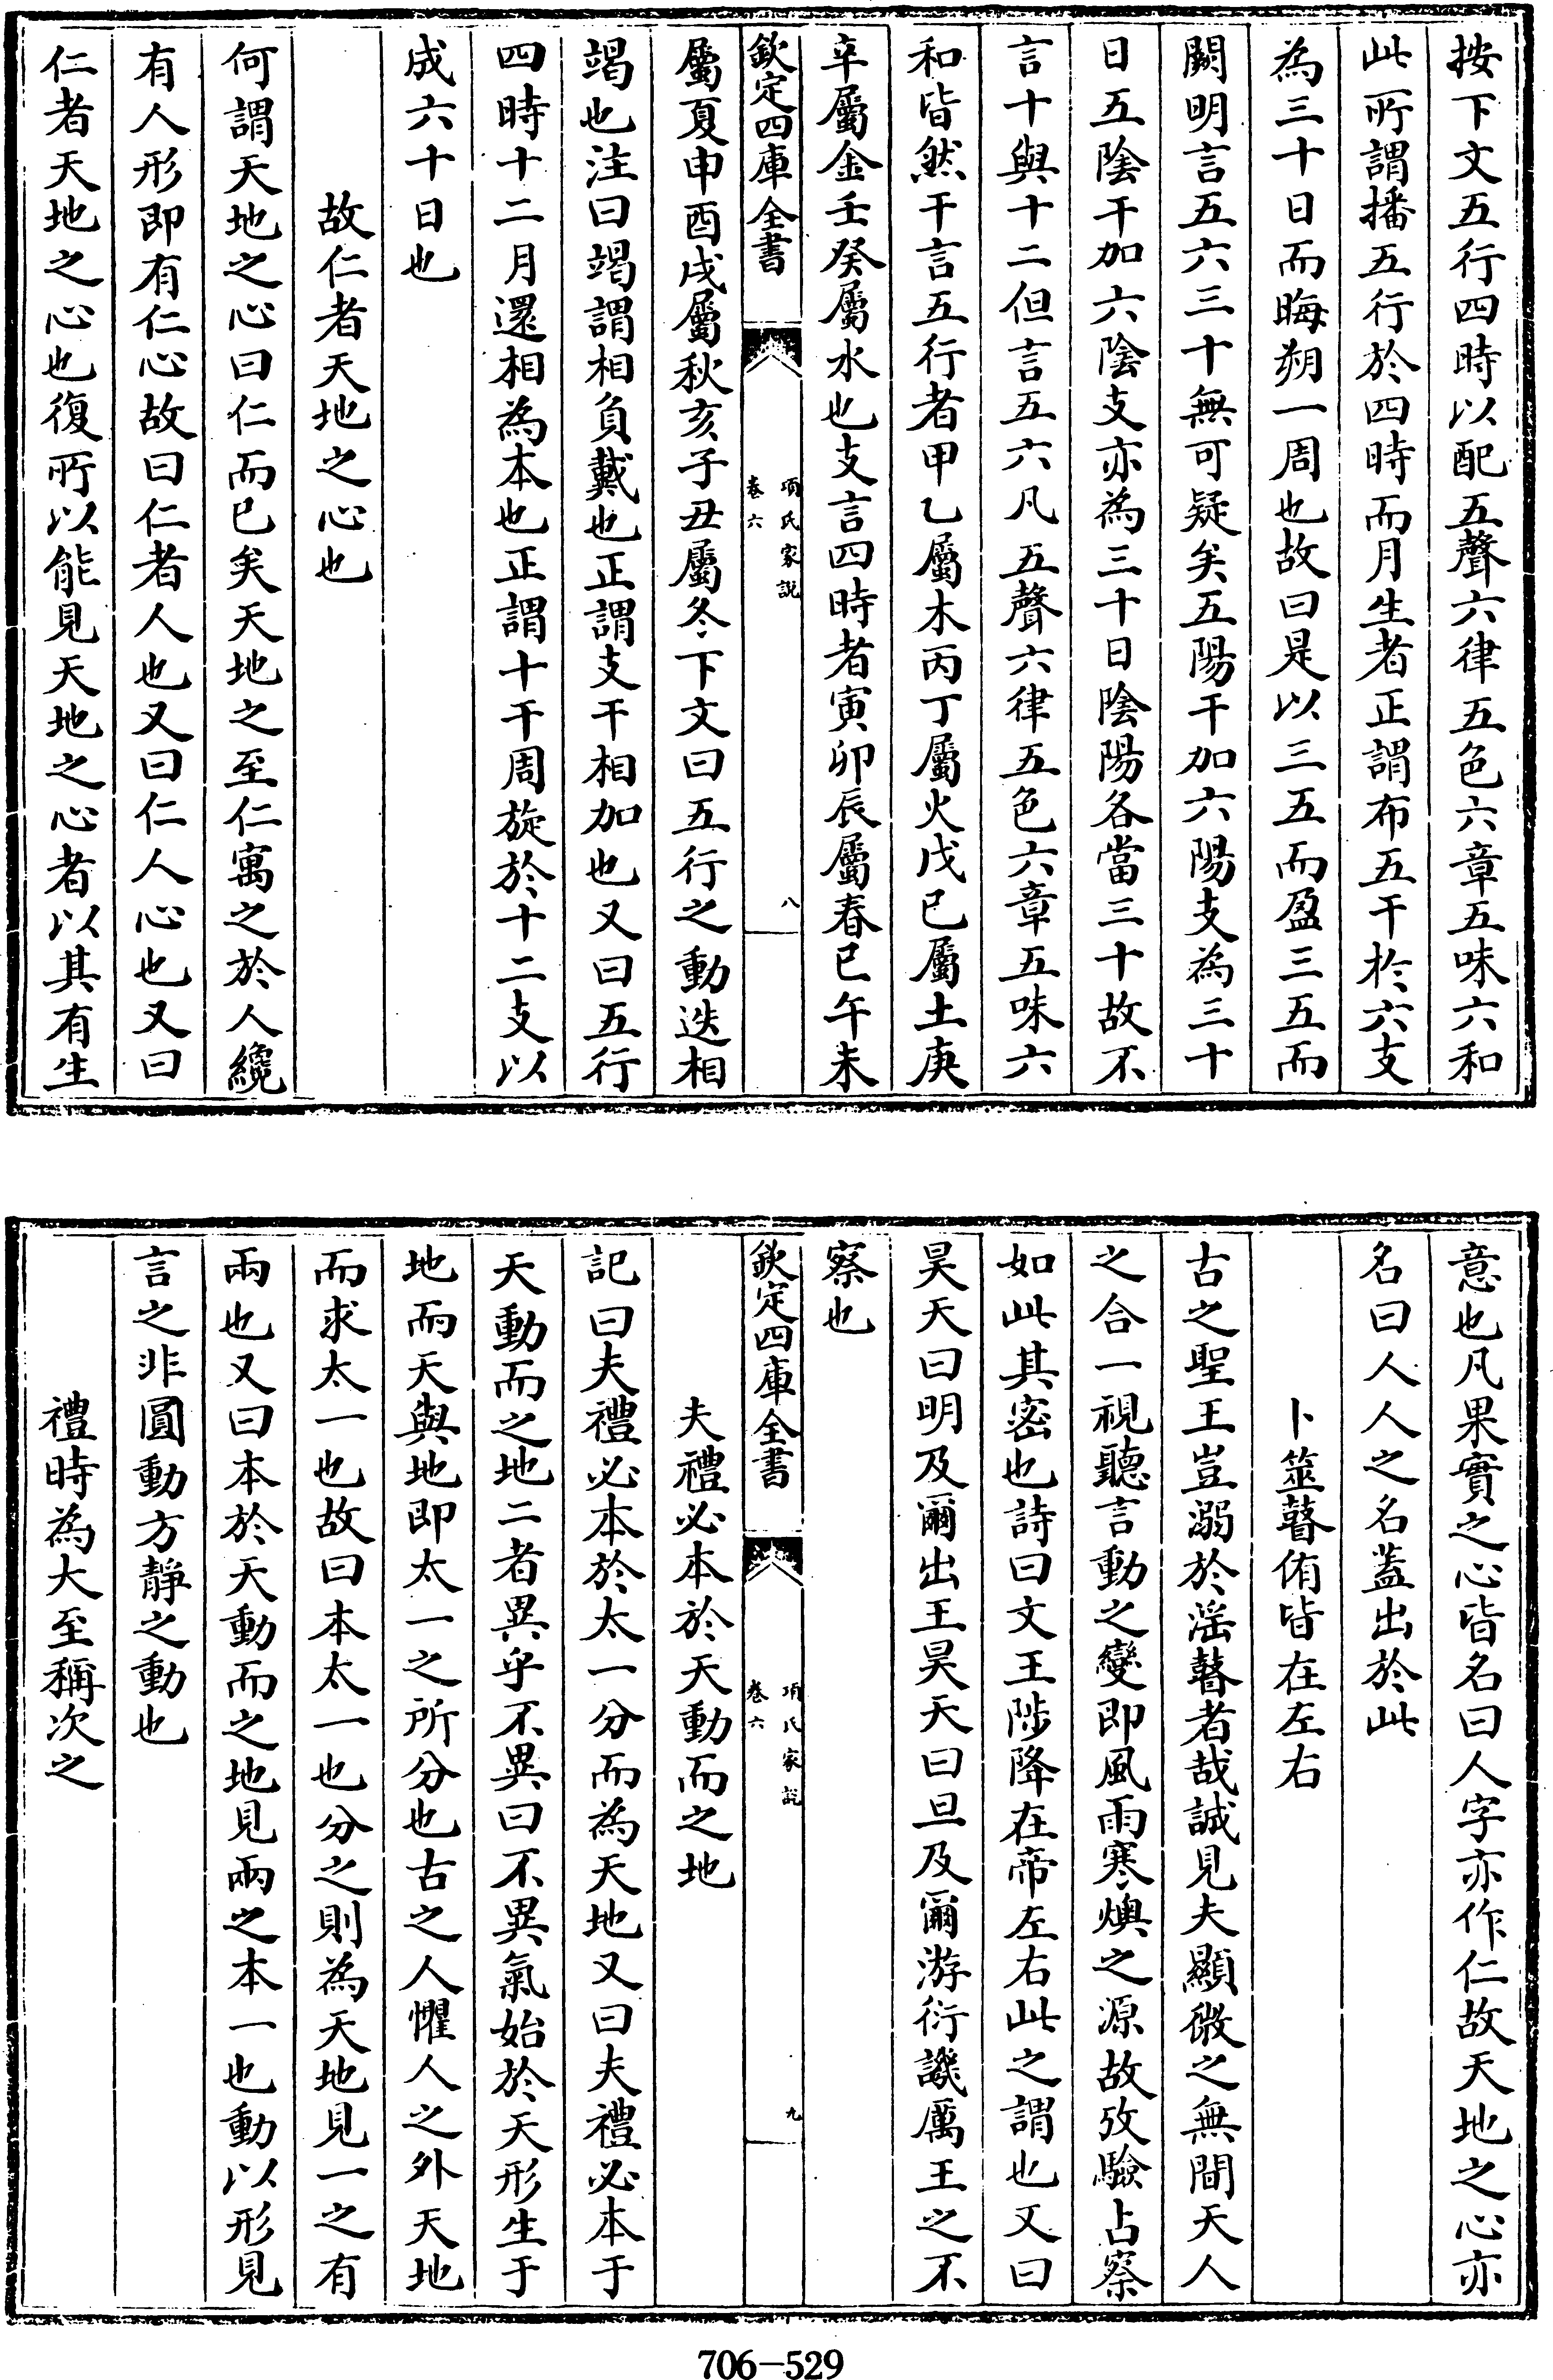 按下文五行四時以配五聲六律五色六章五味六和
此所謂播五行於四時而月生者正謂布五干於六支
為三十日而晦朔一周也故曰是以三五而盈三五而
闕明言五六三十無可疑矣五陽干加六陽支為三十
日五陰干加六陰支亦為三十日陰陽各當三十故不
言十與十二但言五六凡五聲六律五色六章五味六
和皆然干言五行者甲乙屬木丙丁屬火戊己屬土庚
辛屬金壬癸屬水也支言四時者寅卯辰屬春巳午未
欽定四庫全書
項氏家説
卷六
八
屬夏申酉戌屬秋亥子丑屬冬下文曰五行之動迭相
竭也注曰竭謂相負戴也正謂支干相加也又曰五行
四時十二月還相為本也正謂十干周旋於十二支以
成六十日也
故仁者天地之心也
何謂天地之心曰仁而已矣天地之至仁寓之於人纔
有人形即有仁心故曰仁者人也又曰仁人心也又曰
仁者天地之心也復所以能見天地之心者以其有生
意也凡果實之心皆名曰人字亦作仁故天地之心亦
名曰人人之名蓋出於此
卜筮瞽侑皆在左右
古之聖王豈溺於滛瞽者哉誠見夫顯微之無間天人
之合一視聽言動之變即風雨寒燠之源故攷驗占察
如此其密也詩曰文王陟降在帝左右此之謂也又曰
昊天曰明及爾出王昊天曰旦及爾游衍譏厲王之不
察也
欽定四庫全書
項氏家説
卷六
九
夫禮必本於天動而之地
記曰夫禮必本於太一分而為天地又曰夫禮必本于
天動而之地二者異乎不異曰不異氣始於天形生于
地而天與地即太一之所分也古之人懼人之外天地
而求太一也故曰本太一也分之則為天地見一之有
兩也又曰本於天動而之地見兩之本一也動以形見
言之非圓動方靜之動也
禮時為大至稱次之
706-529